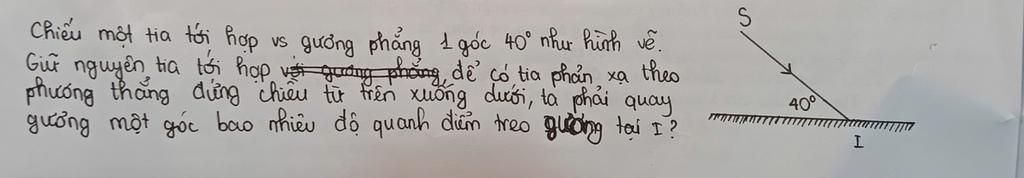 Chiếu một tia tới hợp vs gương phẳng 1 góc 40° như hình vẽ.
Giữ nguyên tia tới hợp với gương phẳng, để có tia phản xạ theo
phương thẳng đứng chiều từ trên xuống dưới, ta phải quay
gương một góc bao nhiêu độ quanh điểm treo gương tại I?
S
40°
I